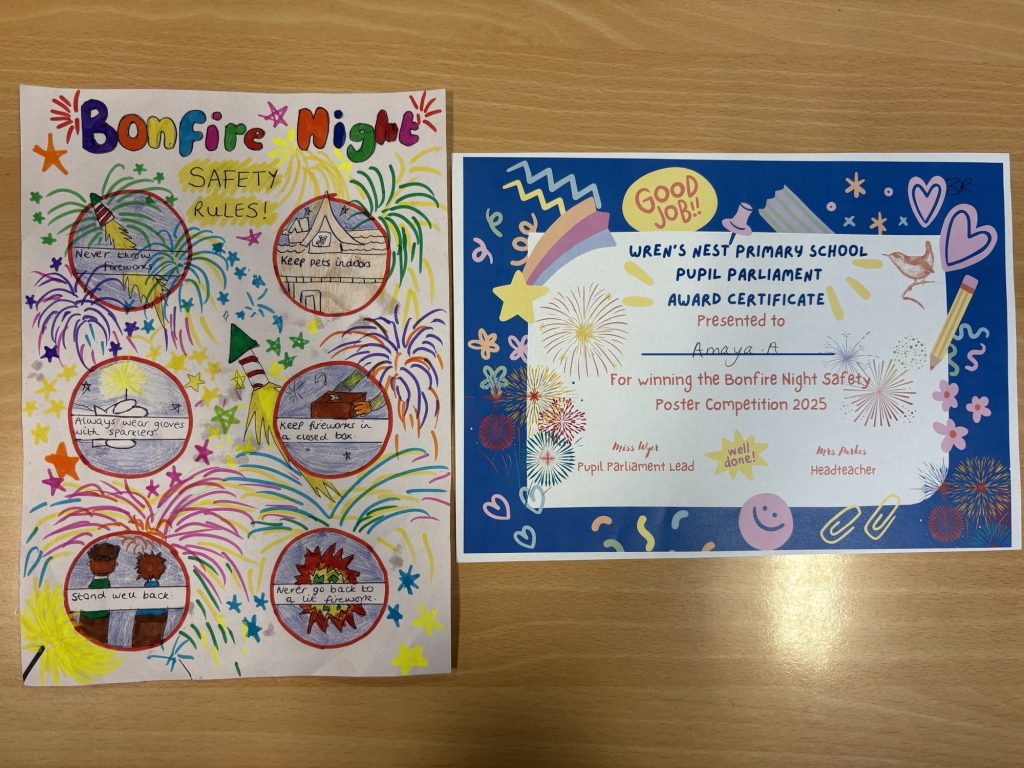 Bonfire Night
SAFETY
RULES!
Never throw
fireworks
Keep pets indoors
Always wear gloves
with sparklers.
Keep fireworks in
a closed box.
Stand well back.
Never go back to
a lit firework.
GOOD
JOB!!
WREN'S NEST PRIMARY SCHOOL
PUPIL PARLIAMENT
AWARD CERTIFICATE
Presented to
Amaya A
For winning the Bonfire Night Safety
Poster Competition 2025
Miss Wyer
Pupil Parliament Lead
well
done!
Mrs Parkes
Headteacher